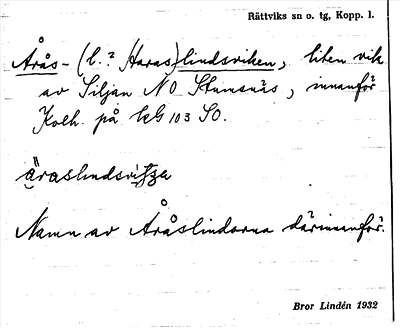 Rättviks sn o. tg, Kopp. l.
Årås- (l.? Haras)lindsviken, liten vik
av Siljan NO Stumsnäs, innanför
Kolh. på kbl 103 SO.
Namn av Åråslindorna därinnanför.
Bror Lindén 1932